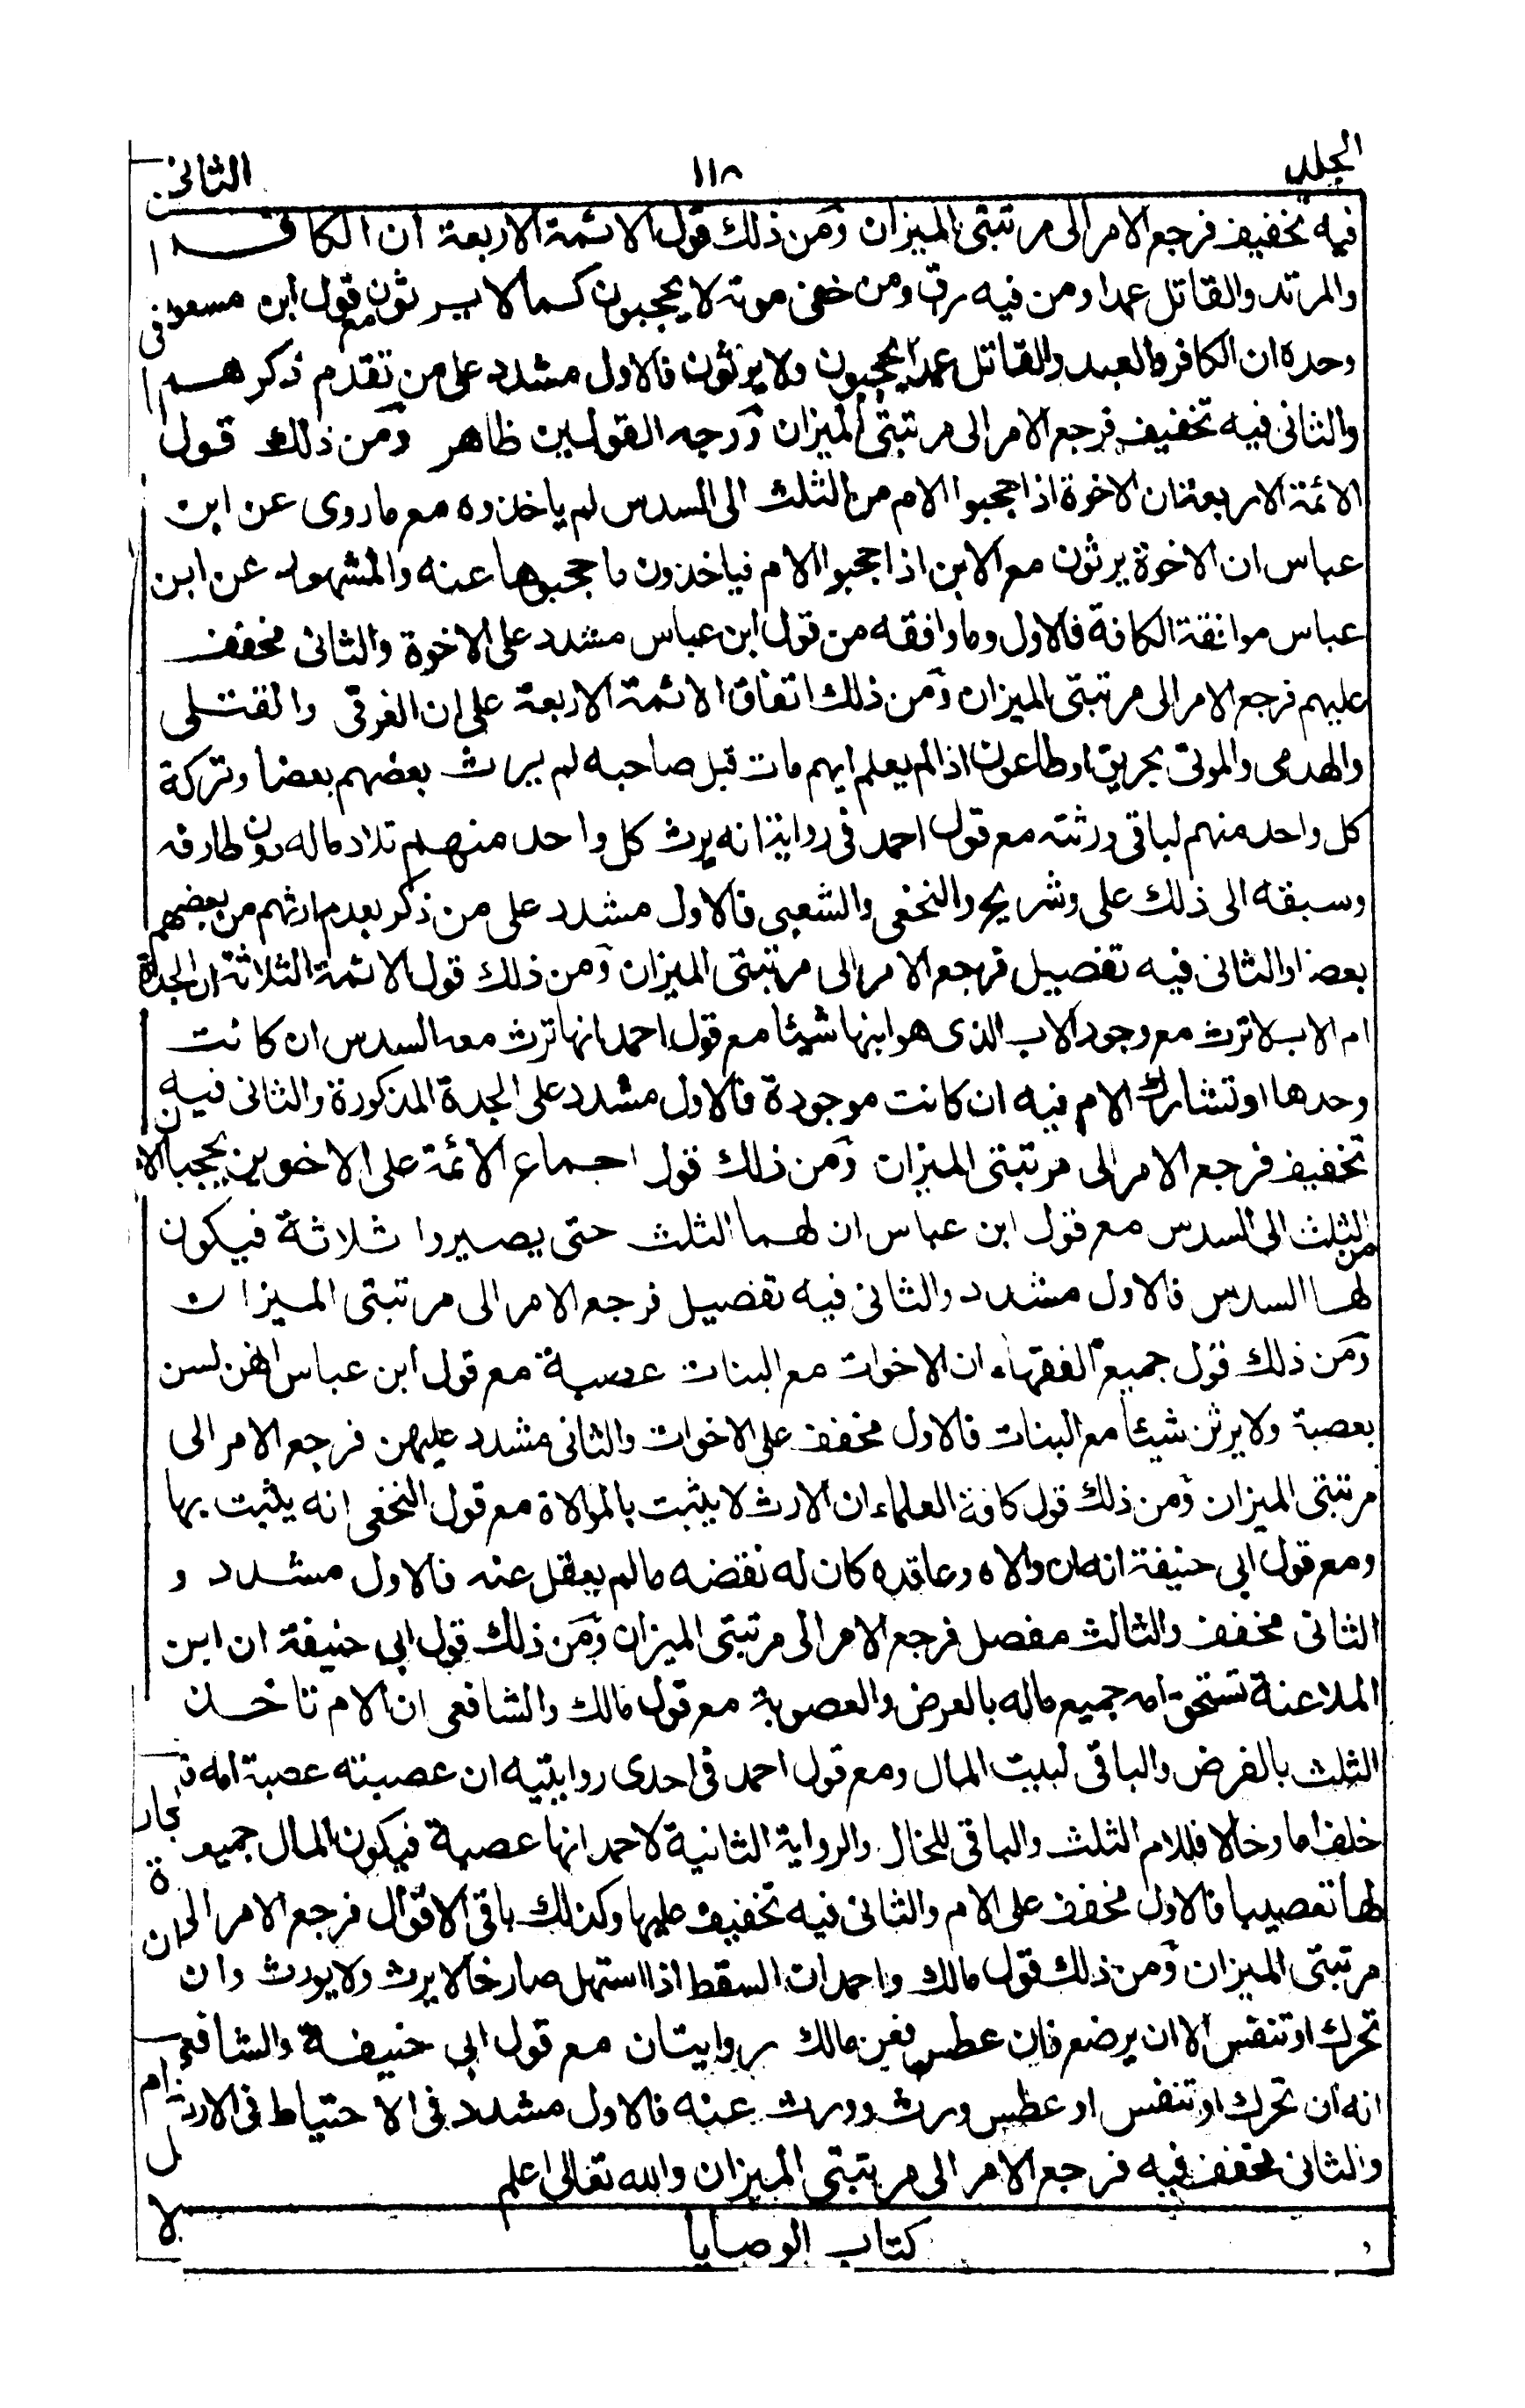 الجلد ١١٨ الثانى
فيه تخفيف فرجع الامر الى مرتبتى الميزان ومن ذلك قول الائمة الاربعة ان الكافر
والمرتد والقاتل عمدا ومن فيه رق ومن خفى موته لا يحجبون كما لا يرثون مع قول ابن مسعود
وحده ان الكافر والعبد والقاتل عمدا يحجبون ولا يرثون فالاول مشدد على من تقدم ذكرهم
والثانى فيه تخفيف فرجع الامر الى مرتبتى الميزان ووجه القولين ظاهر ومن ذلك قول
الائمة الاربعة ان الاخوة اذا حجبوا الام من الثلث الى السدس لم ياخذوه مع ما روى عن ابن
عباس ان الاخوة يرثون مع الابن اذا حجبوا الام فياخذون ما حجبوها عنه والمشهور عن ابن
عباس موافقة الكافة فالاول وما وافقه من قول ابن عباس مشدد على الاخوة والثانى مخفف
عليهم فرجع الامر الى مرتبتى الميزان ومن ذلك اتفاق الائمة الاربعة على ان الغرقى والقتلى
والهدمى والموتى بحريق او طاعون اذا لم يعلم ايهم مات قبل صاحبه لم يرث بعضهم بعضا وتركة
كل واحد منهم لباقى ورثته مع قول احمد فى رواية انه يرث كل واحد منهم تلاد ماله دون طارفه
وسبقه الى ذلك على وشريح والنخعى والشعبى فالاول مشدد على من ذكر بعدم ارثهم من بعضهم
بعضا والثانى فيه تفصيل فرجع الامر الى مرتبتى الميزان ومن ذلك قول الائمة الثلاثة ان الجدة
ام الاب لا ترث مع وجود الاب الذى هو ابنها شيئا مع قول احمد انها ترث معه السدس ان كانت
وحدها او تشارك الام فيه ان كانت موجودة فالاول مشدد على الجدة المذكورة والثانى فيه
تخفيف فرجع الامر الى مرتبتى الميزان ومن ذلك قول اجماع الائمة على الاخوين يحجبان الام
من الثلث الى السدس مع قول ابن عباس ان لهما الثلث حتى يصيروا ثلاثة فيكون
لها السدس فالاول مشدد والثانى فيه تفصيل فرجع الامر الى مرتبتى الميزان
ومن ذلك قول جميع الفقهاء ان الاخوات مع البنات عصبة مع قول ابن عباس انهن لسن
بعصبة ولا يرثن شيئا مع البنات فالاول مخفف على الاخوات والثانى مشدد عليهن فرجع الامر الى
مرتبتى الميزان ومن ذلك قول كافة العلماء ان الارث لا يثبت بالموالاة مع قول النخعى انه يثبت بها
ومع قول ابى حنيفة انه ان والاه وعاقده كان له نقضه ما لم يعقل عنه فالاول مشدد و
الثانى مخفف والثالث مفصل فرجع الامر الى مرتبتى الميزان ومن ذلك قول ابى حنيفة ان ابن
الملاعنة تستحق امه جميع ماله بالفرض والعصوبة مع قول مالك والشافعى ان الام تاخذ
الثلث بالفرض والباقى لبيت المال ومع قول احمد فى احدى روايتيه ان عصبته عصبة امه ف
خلف اما وخالا فللام الثلث والباقى للخال والرواية الثانية لاحمد انها عصبة فيكون المال جميعه
لها تعصيبا فالاول مخفف على الام والثانى فيه تخفيف عليها وكذلك باقى الاقوال فرجع الامر الى
مرتبتى الميزان ومن ذلك قول مالك واحمد ان السقط اذا استهل صارخا لا يرث ولا يورث وان
تحرك او تنفس الا ان يرضع فان عطس فعن مالك روايتان مع قول ابى حنيفة والشافعى
انه ان تحرك او تنفس او عطس ورث وورث عنه فالاول مشدد فى الاحتياط فى الارث
والثانى مخفف فيه فرجع الامر الى مرتبتى الميزان والله تعالى اعلم
كتاب الوصايا